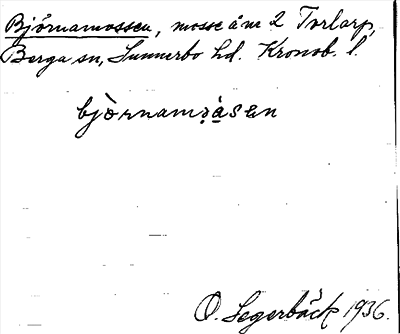 Björnamossen, mosse å nr 2 Torlarp,
Berga sn, Sunnerbo hd. Kronob. l.
bjö̀rnamɔ̣̀sen
O. Segerbäck 1936.